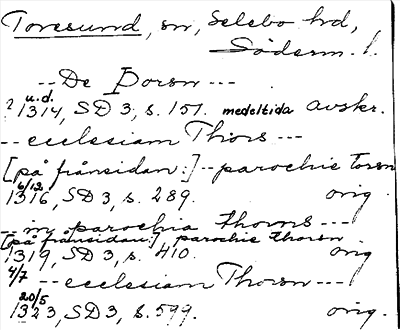 Toresund, sn, Selebo hd,
Söderm. l.
-- De Þorsn ---
? u.d.
1314, SD 3, s. 151. medeltida avskr.
-- ecclesiam Thors ---
[på frånsidan:] -- parochie Torsn
6/12
1316, SD 3, s. 289. orig.
-- in parochia thorns ---
[på frånsidan:] parochie thorsn
1319, SD 3, s. 410. orig
4/7 -- ecclesiam Thorsn ---
20/5
1323, SD 3, s. 599. orig.